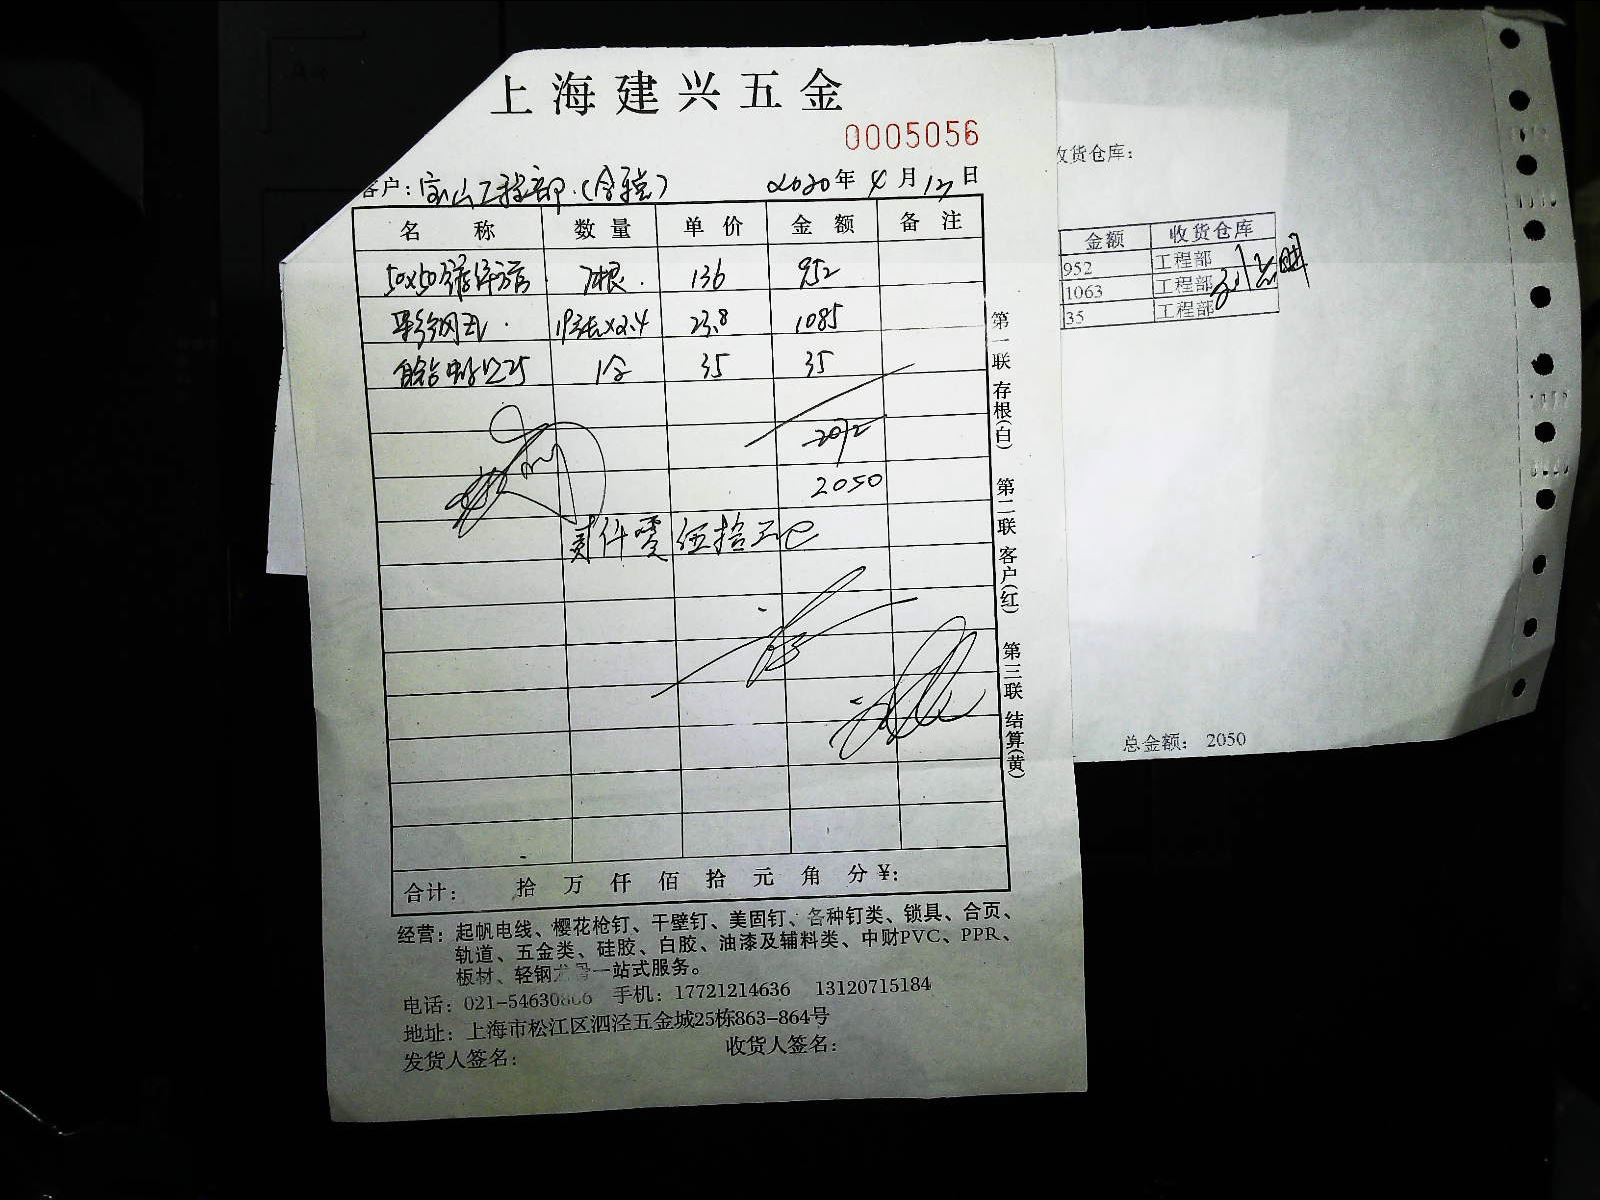 上海建兴五金
0005056
客户：宝山工程部（
2020年4月17日
名 称 数 量 单 价 金 额 备 注
50x50 7根 136 952
彩钢瓦 19张x2.4 23.8 1085
25 1合 35 35
2072
2050
贰仟零伍拾元
合计： 拾 万 仟 佰 拾 元 角 分 ¥：
第一联 存根(白) 第二联 客户(红) 第三联 结算(黄)
经营：起帆电线、樱花枪钉、干壁钉、美固钉、各种钉类、锁具、合页、
轨道、五金类、硅胶、白胶、油漆及辅料类、中财PVC、PPR、
板材、轻钢龙骨一站式服务。
电话：021-54630806 手机：17721214636 13120715184
地址：上海市松江区泗泾五金城25栋863-864号
发货人签名： 收货人签名：
收货仓库：
金额 收货仓库
952 工程部
1063 工程部
35 工程部
总金额： 2050